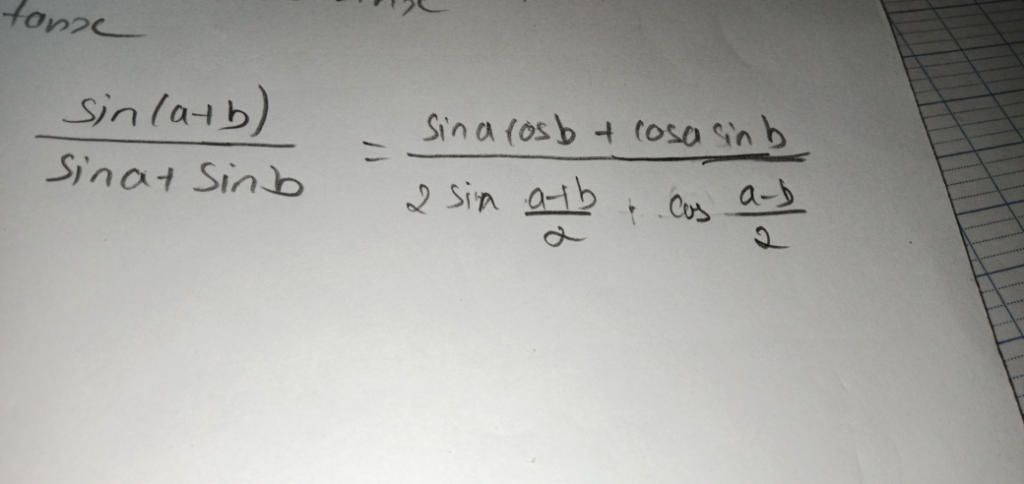 tanx
sin(a+b) / sina + sinb = sina cosb + cosa sinb / 2 sin a+b/2 · cos a-b/2